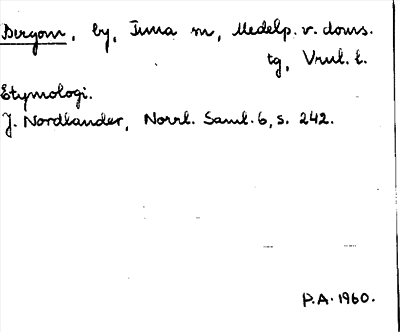 Bergom, by, Tuna sn, Medelp. v. doms.
tg, Vnrl. l.
Etymologi.
J. Nordlander, Norrl. Saml. 6, s. 242.
P.A. 1960.